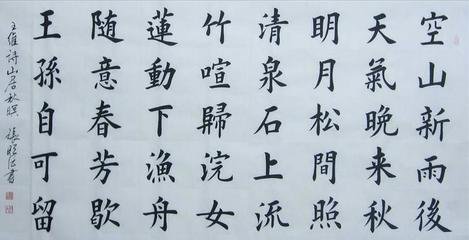 空山新雨後
天氣晚来秋
明月松間照
清泉石上流
竹喧歸浣女
蓮動下漁舟
随意春芳歇
王孫自可留
王維詩山居秋暝 張書